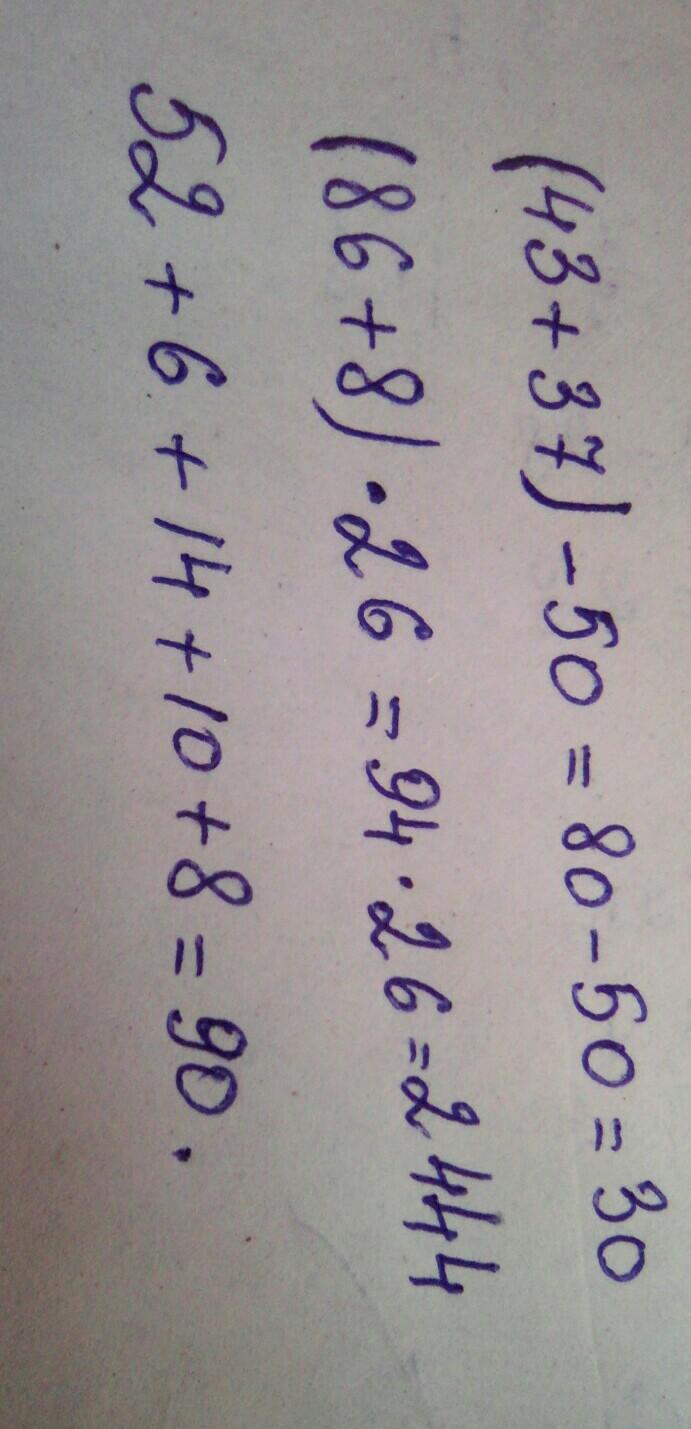 (43+37)-50=80-50=30
(86+8)·26=94·26=2444
52+6+14+10+8=90.